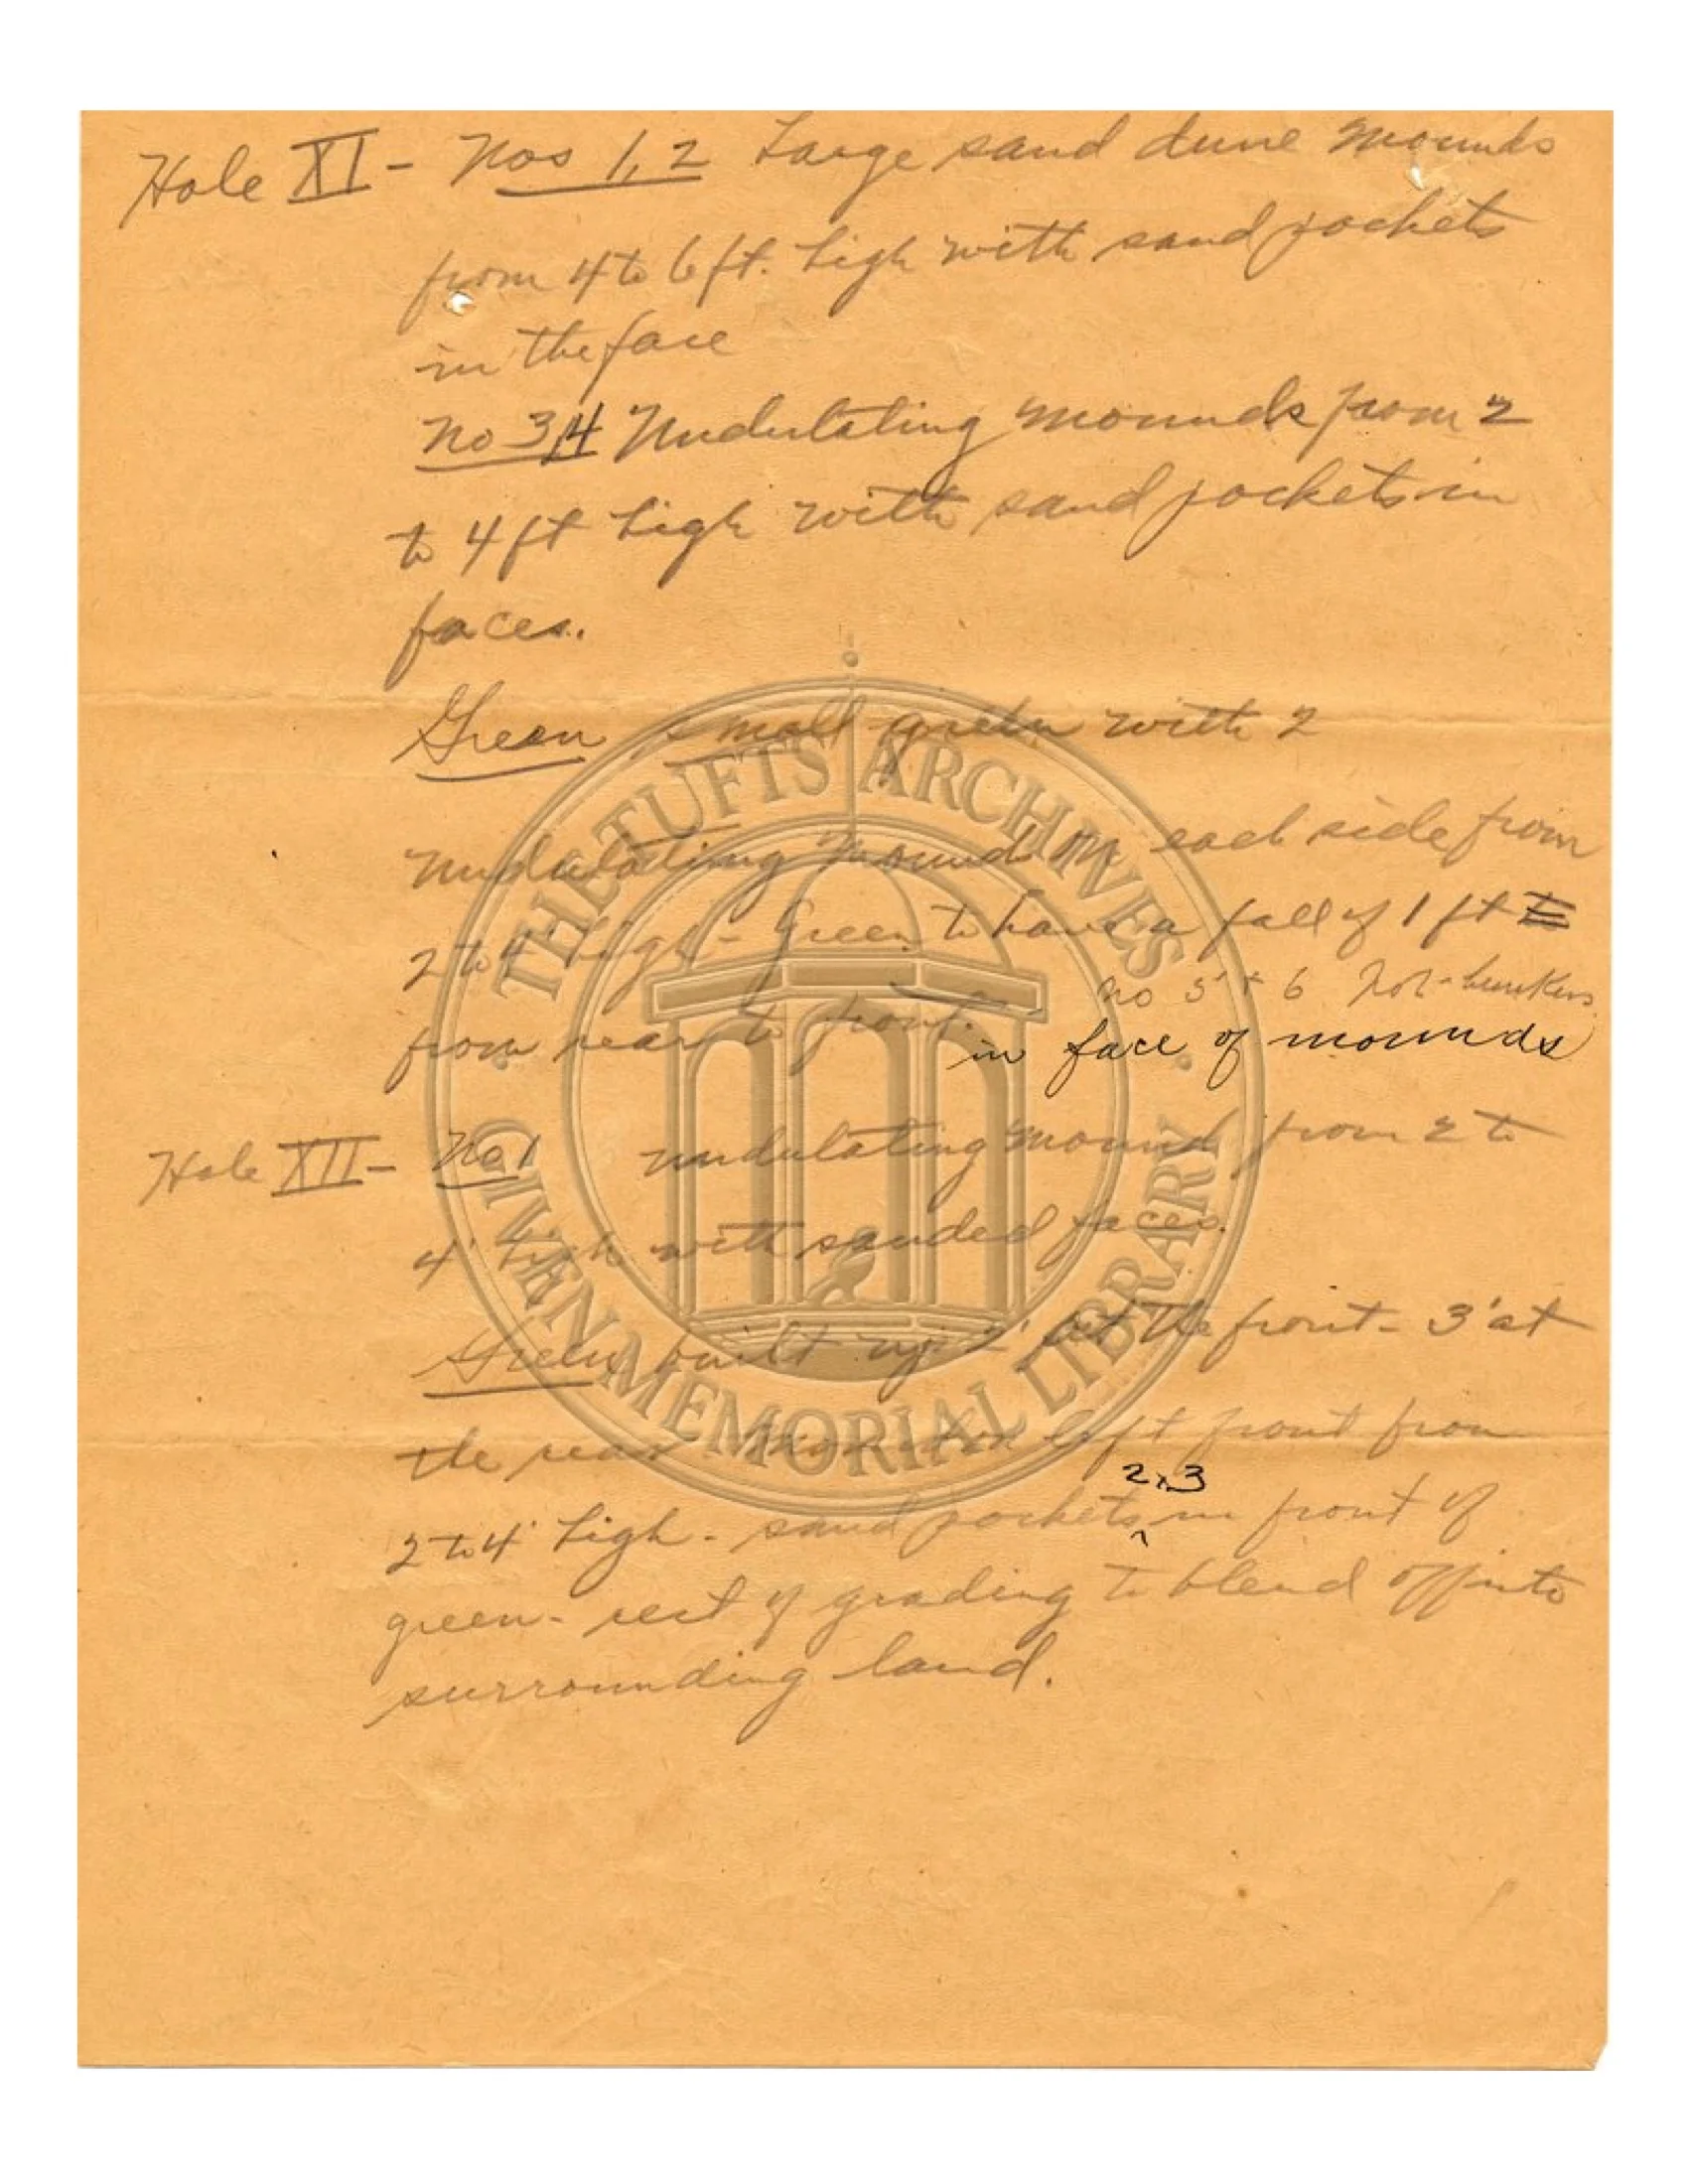 Hole XI - Nos 1, 2 Large sand dune mounds
from 4 to 6 ft. high with sand pockets
in the face
No 3,4 Undulating mounds from 2
to 4 ft high with sand pockets in
faces.
Green small green with 2
undulating mound on each side from
2 to 4' high - Green to have a fall of 1 ft
from rear to front.
no 5 + 6 Pot-bunkers
in face of mounds
Hole XII - No 1 undulating mound from 2 to
4' high with sanded faces.
Green built up 2' at the front - 3' at
the rear left front from
2 to 4' high - sand pockets 2,3 in front of
green - rest of grading to blend off into
surrounding land.
THE TUFTS ARCHIVES
GIVEN MEMORIAL LIBRARY